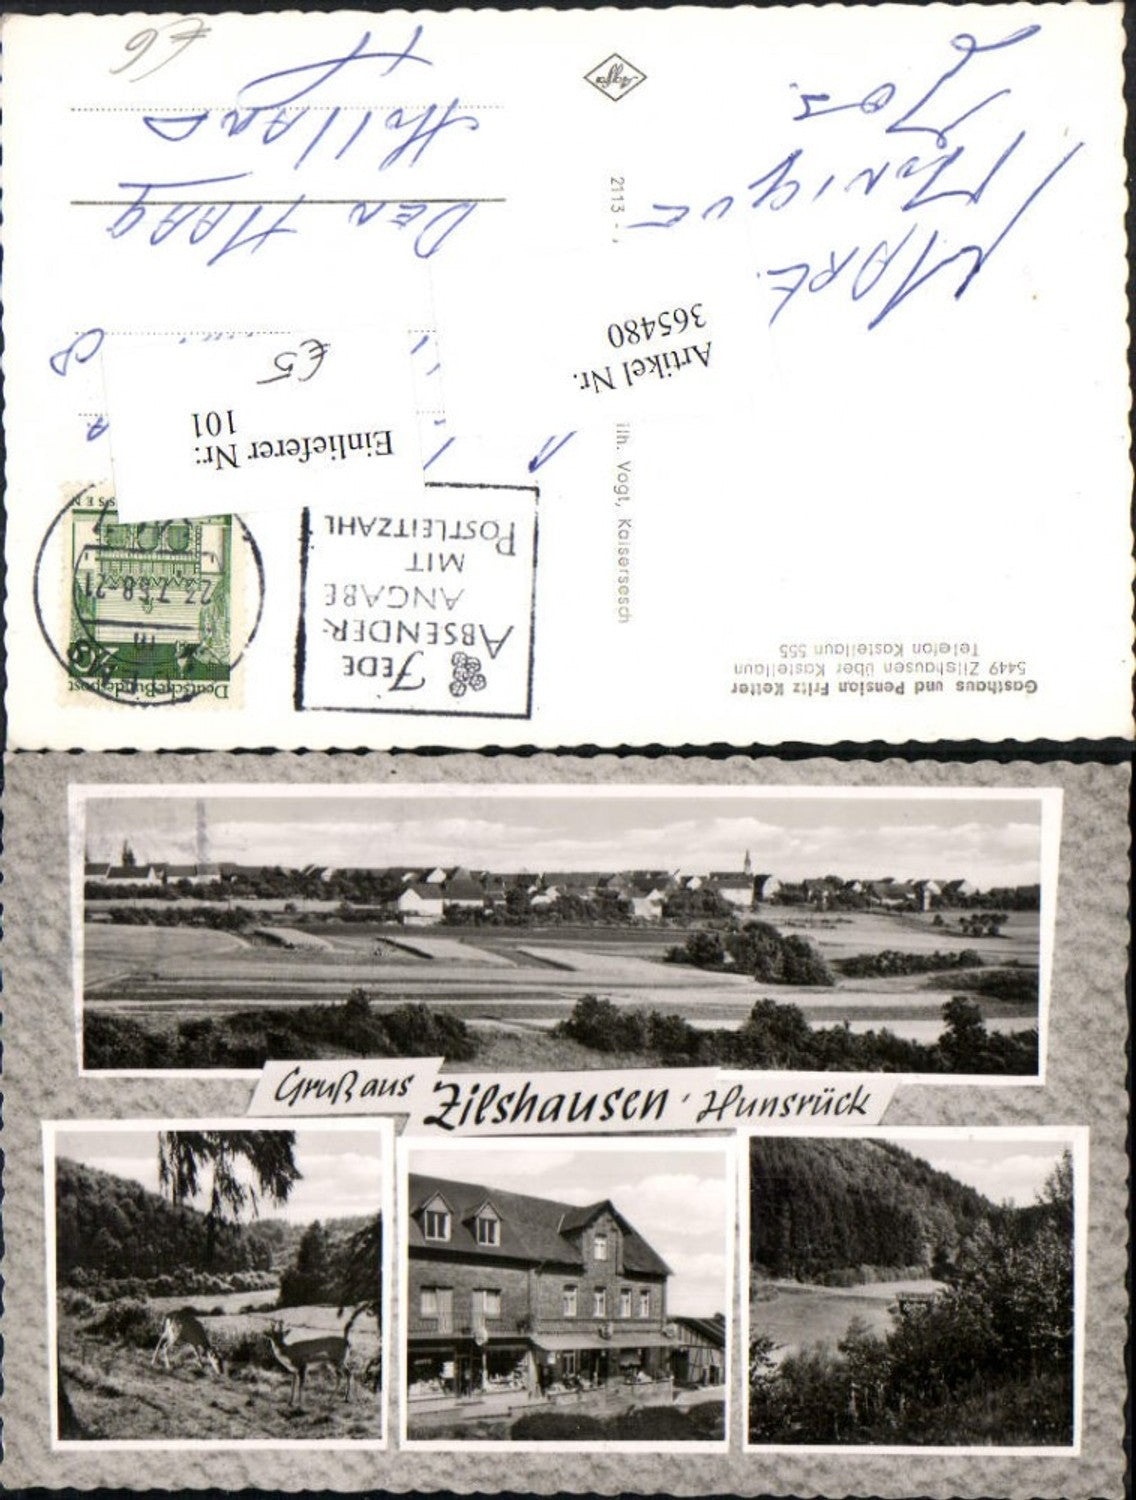 Gasthaus und Pension Fritz Ketter
5449 Zilshausen über Kastellaun
Telefon Kastellaun 555
JEDE
ABSENDER-
ANGABE
MIT
POSTLEITZAHL
Deutsche Bundespost
23.7.68-21
Einlieferer Nr:
101
€5
Artikel Nr.
365480
ilh. Vogt, Kaisersesch
2113 -
Agfa
MARC
MONIQUE
Jos
DEN HAAG
HOLLAND
€6
Gruß aus Zilshausen · Hunsrück